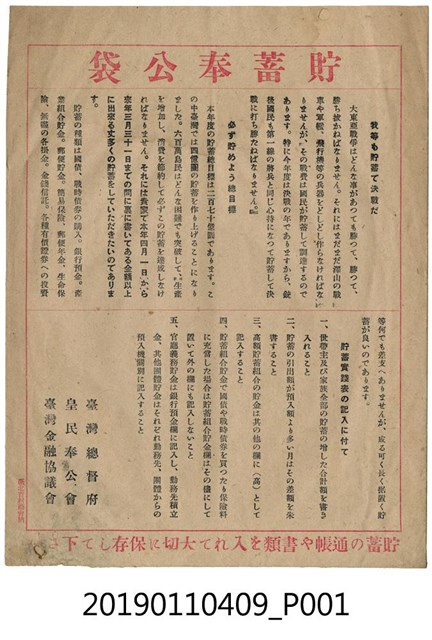 貯蓄奉公袋
我等も貯蓄で決戰だ
大東亞戰爭はどんな事があつても勝つて、勝つて、
勝ち拔かねばなりません。それにはまだまだ澤山の戰
車や軍艦、飛行機等の兵器をどしどし作らなければな
りませんが、その戰費は國民が貯蓄して調達するので
あります。特に今年度は決戰の年でありますから、銃
後國民も第一線の將兵と同じ心持になつて貯蓄して決
戰に打ち勝たねばなりません。
必ず貯めよう總目標
本年度の貯蓄總目標は二百七十億圓であります。こ
の中臺灣では四億圓の貯蓄を作り上げることになり
ました。六百萬島民はどんな困難でも突破して、生產
を增加し、消費を節約して必ずこの貯蓄を達成しなけ
ればなりません。それには貴家で本年四月一日から
來年三月三十一日までの間に裏に書いてある金額以上
に出來る丈多くの貯蓄をしていただきたいのでありま
す。
貯蓄の種類は國債、戰時債券の購入。銀行預金。產
業組合貯金。郵便貯金。簡易保險、郵便年金、生命保
險、無盡の各掛金。金錢信託。各種有價證券への投資
等何でも差支へありませんが、成る可く長く据置く貯
蓄が良いのであります。
貯蓄實踐表の記入に付て
一、世帶主及び家族全部の貯蓄の增した合計額を書き
入れること
二、貯蓄の引出額が預入額より多い月はその差額を朱
書すること
三、高額貯蓄組合の貯金は其の他の欄に(高)として
記入すること
四、貯蓄組合貯金で國債や戰時債券を買つたり保險料
に充當した場合は貯蓄組合貯金欄はその儘にして
置いて外の欄にも記入しないこと
五、官廳義務貯金は銀行預金欄に記入し、勤務先積立
金、其他團體貯金はそれぞれ勤務先、團體からの
預入機關別に記入すること
臺灣總督府
皇民奉公會
臺灣金融協議會
貯蓄の通帳や書類を入れて大切に保存して下さい
20190110409_P001